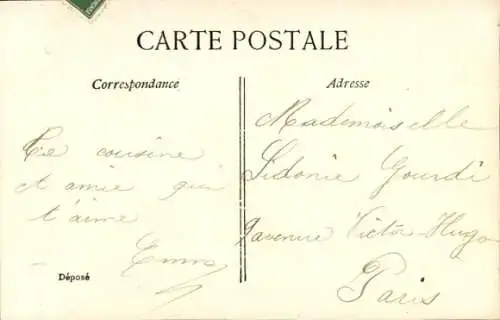 CARTE POSTALE
Correspondance
Adresse
cousine
et amie qui
t'aime
Déposé
Mademoiselle
Sidonie Gourdi
avenue Victor Hugo
Paris